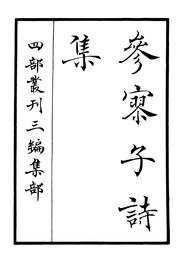 參寥子詩
集
四部叢刊三編集部